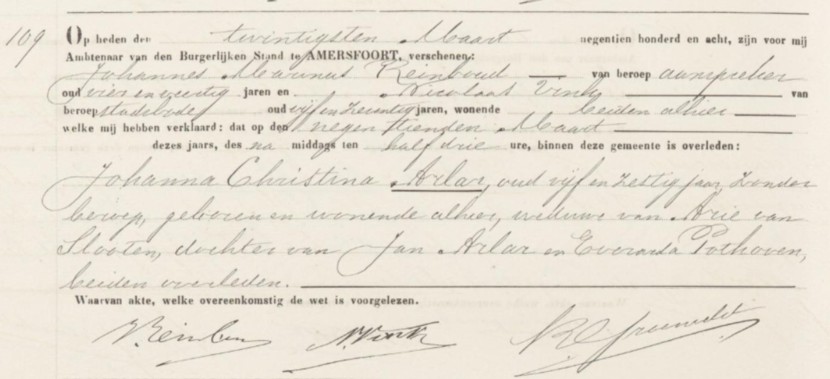 109 Op heden den twintigsten Maart negentien honderd en acht, zijn voor mij
Ambtenaar van den Burgerlijken Stand te AMERSFOORT, verschenen:
Johannes Marinus Reinboud van beroep aanspreker
oud vier en veertig jaren en Nicolaas Vink van
beroep stadsbode oud vijf en zeventig jaren, wonende beiden alhier
welke mij hebben verklaard: dat op den negentienden Maart
dezes jaars, des na middags ten half drie ure, binnen deze gemeente is overleden:
Johanna Christina Arlar, oud vijf en zestig jaar, zonder
beroep, geboren en wonende alhier, weduwe van Arie van
Slooten, dochter van Jan Arlar en Everarda Pothoven,
beiden overleden.
Waarvan akte, welke overeenkomstig de wet is voorgelezen.
N. Vink